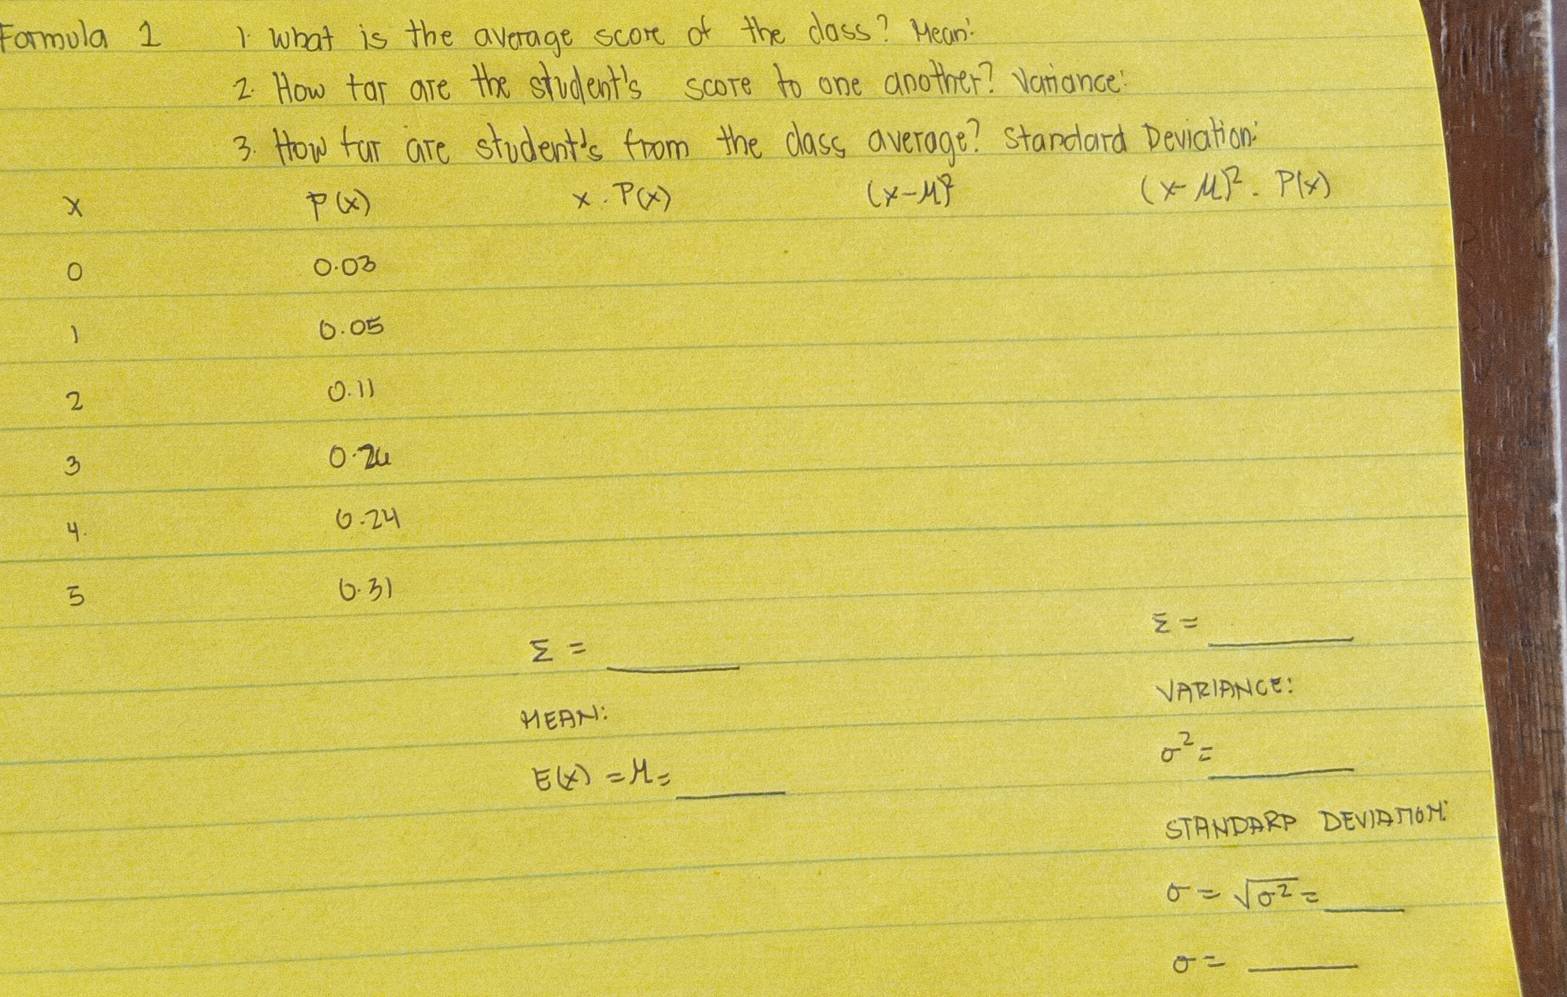 Formula 1 1. What is the average score of the class? Mean:
2. How far are the student's score to one another? Variance:
3. How far are student's from the class average? Standard Deviation:
x P(x) x . P(x) (x-μ)² (x-μ)² . P(x)
0 0.03
1 0.05
2 0.11
3
4. 0.24
5 0.31
Σ = ______ Σ = ______
MEAN: VARIANCE:
E(x) = μ = ______ σ² = ______
STANDARD DEVIATION:
σ = √σ² = ______
σ = ______